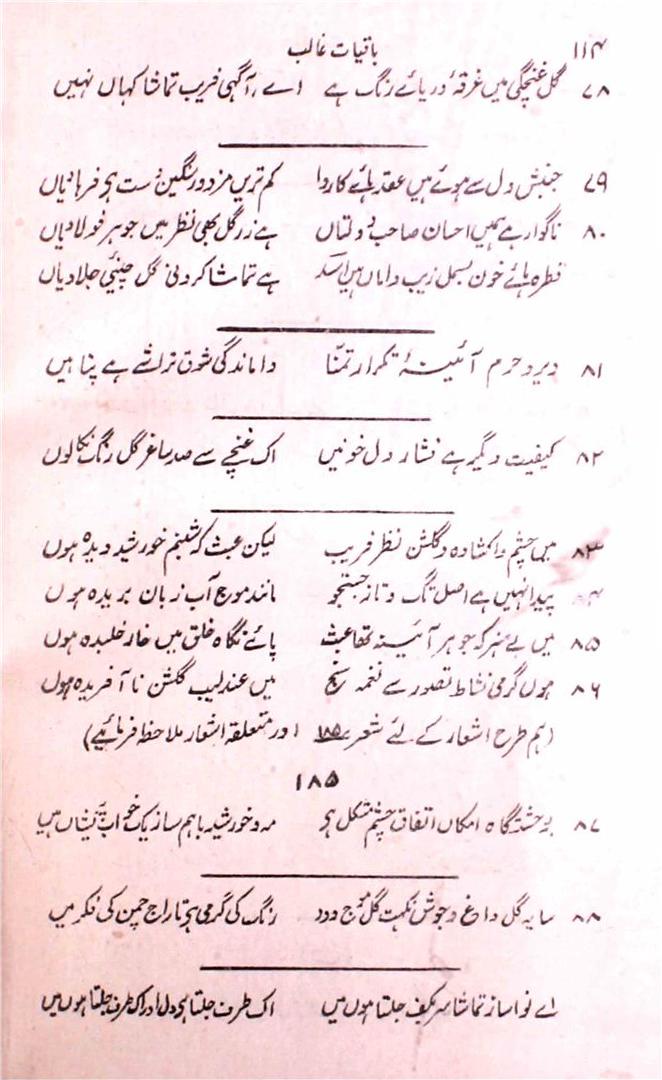 ۱۱۴ باقیات غالب
۷۸ گل غنچگی میں غرقۂ دریائے رنگ ہے اے آگہی فریب تماشا کہاں نہیں
۷۹ جنبش دل سے ہوئے ہیں عقدہ ہائے کار وا کم تریں مزدور سنگیں دست ہے فرہاد یاں
۸۰ ناگوار ہے ہمیں احسان صاحب دولتاں ہے زر گل بھی نظر میں جوہر فولاد یاں
قطرہ ہائے خون بسمل زیب داماں ہیں اسدؔ ہے تماشا کردنی گل چینیِ جلاد یاں
۸۱ دیر و حرم آئینۂ تکرار تمنّا واماندگی شوق تراشے ہے پناہیں
۸۲ کیفیت دگر ہے فشار دل خونیں اک غنچے سے صد ساغر گل رنگ نکالوں
۸۳ میں چشم وا کشادہ و گلشن نظر فریب لیکن عبث کہ شبنم خورشید دیدہ ہوں
۸۴ پیدا نہیں ہے اصل تگ و تاز جستجو مانند موج آب زبان بریدہ ہوں
۸۵ میں بے ہنر کہ جوہر آئینہ تھا عبث پائے نگاہ خلق میں خار خلیدہ ہوں
۸۶ ہوں گرمی نشاط تصور سے نغمہ سنج میں عندلیب گلشن نا آفریدہ ہوں
(ہم طرح اشعار کے لئے شعر ۱۸۵ اور متعلقہ اشعار ملاحظہ فرمائیے)
۱۸۵
۸۷ بوحشت گاہ امکاں اتفاق چشم مشکل ہے مہ و خورشید باہم ساز یک خواب پریشاں ہیں
۸۸ سایہ گل داغ و جوش نکہت گل موج دود رنگ کی گرمی ہے تاراج چمن کی فکر میں
اے نوا ساز تماشا سر بکف جلتا ہوں میں اک طرف جلتا ہے دل اور اک طرف جلتا ہوں میں